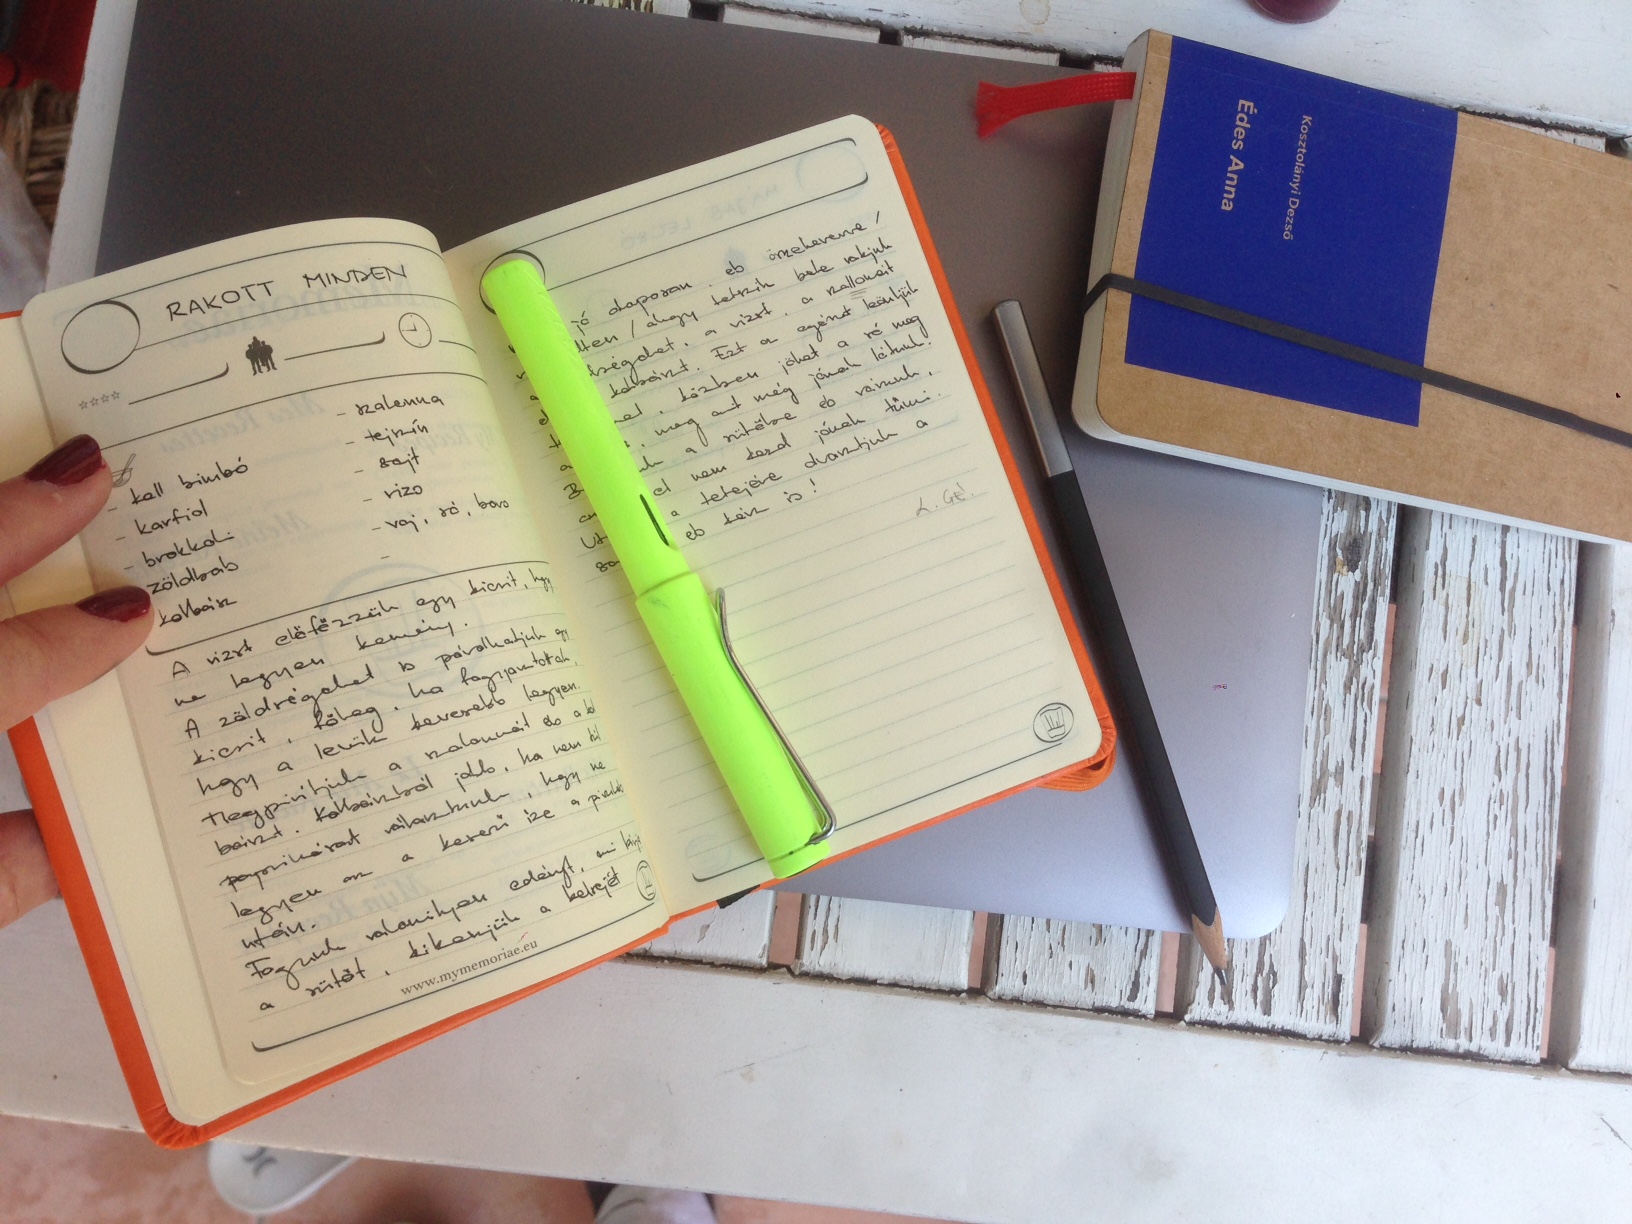 RAKOTT MINDEN
- kell bimbó
- karfiol
- brokkoli
- zöldbab
kolbász
- szalonna
- tejszín
- sajt
- rizs
- vaj, só, bors
-
A rizst előfőzzük egy kicsit, hogy
ne legyen kemény.
A zöldségeket is párolhatjuk egy
kicsit, főleg, ha fagyasztottak,
hogy a levük kevesebb legyen.
Megpirítjuk a szalonnát és a kol
bászt. Kolbászból jobb, ha nem túl
paprikásat választunk, hogy ne
legyen az a keserű íze a pirítás
után.
Fogunk valamilyen edényt, ami bírja
a sütőt, kikenjük a
www.mymemoriae.eu
jó alaposan. és összekeverve /
/ ahogy tetszik bele rakjuk
a rizst, a szallonnát
kolbászt. Ezt az egészet leöntjük
közben jöhet a só meg
meg amit még jónak látunk.
a sütőbe és várunk,
el nem kezd jónak tűnni.
a tetejére olvasztjuk a
és kész is!
L. Gé.
Kosztolányi Dezső
Édes Anna